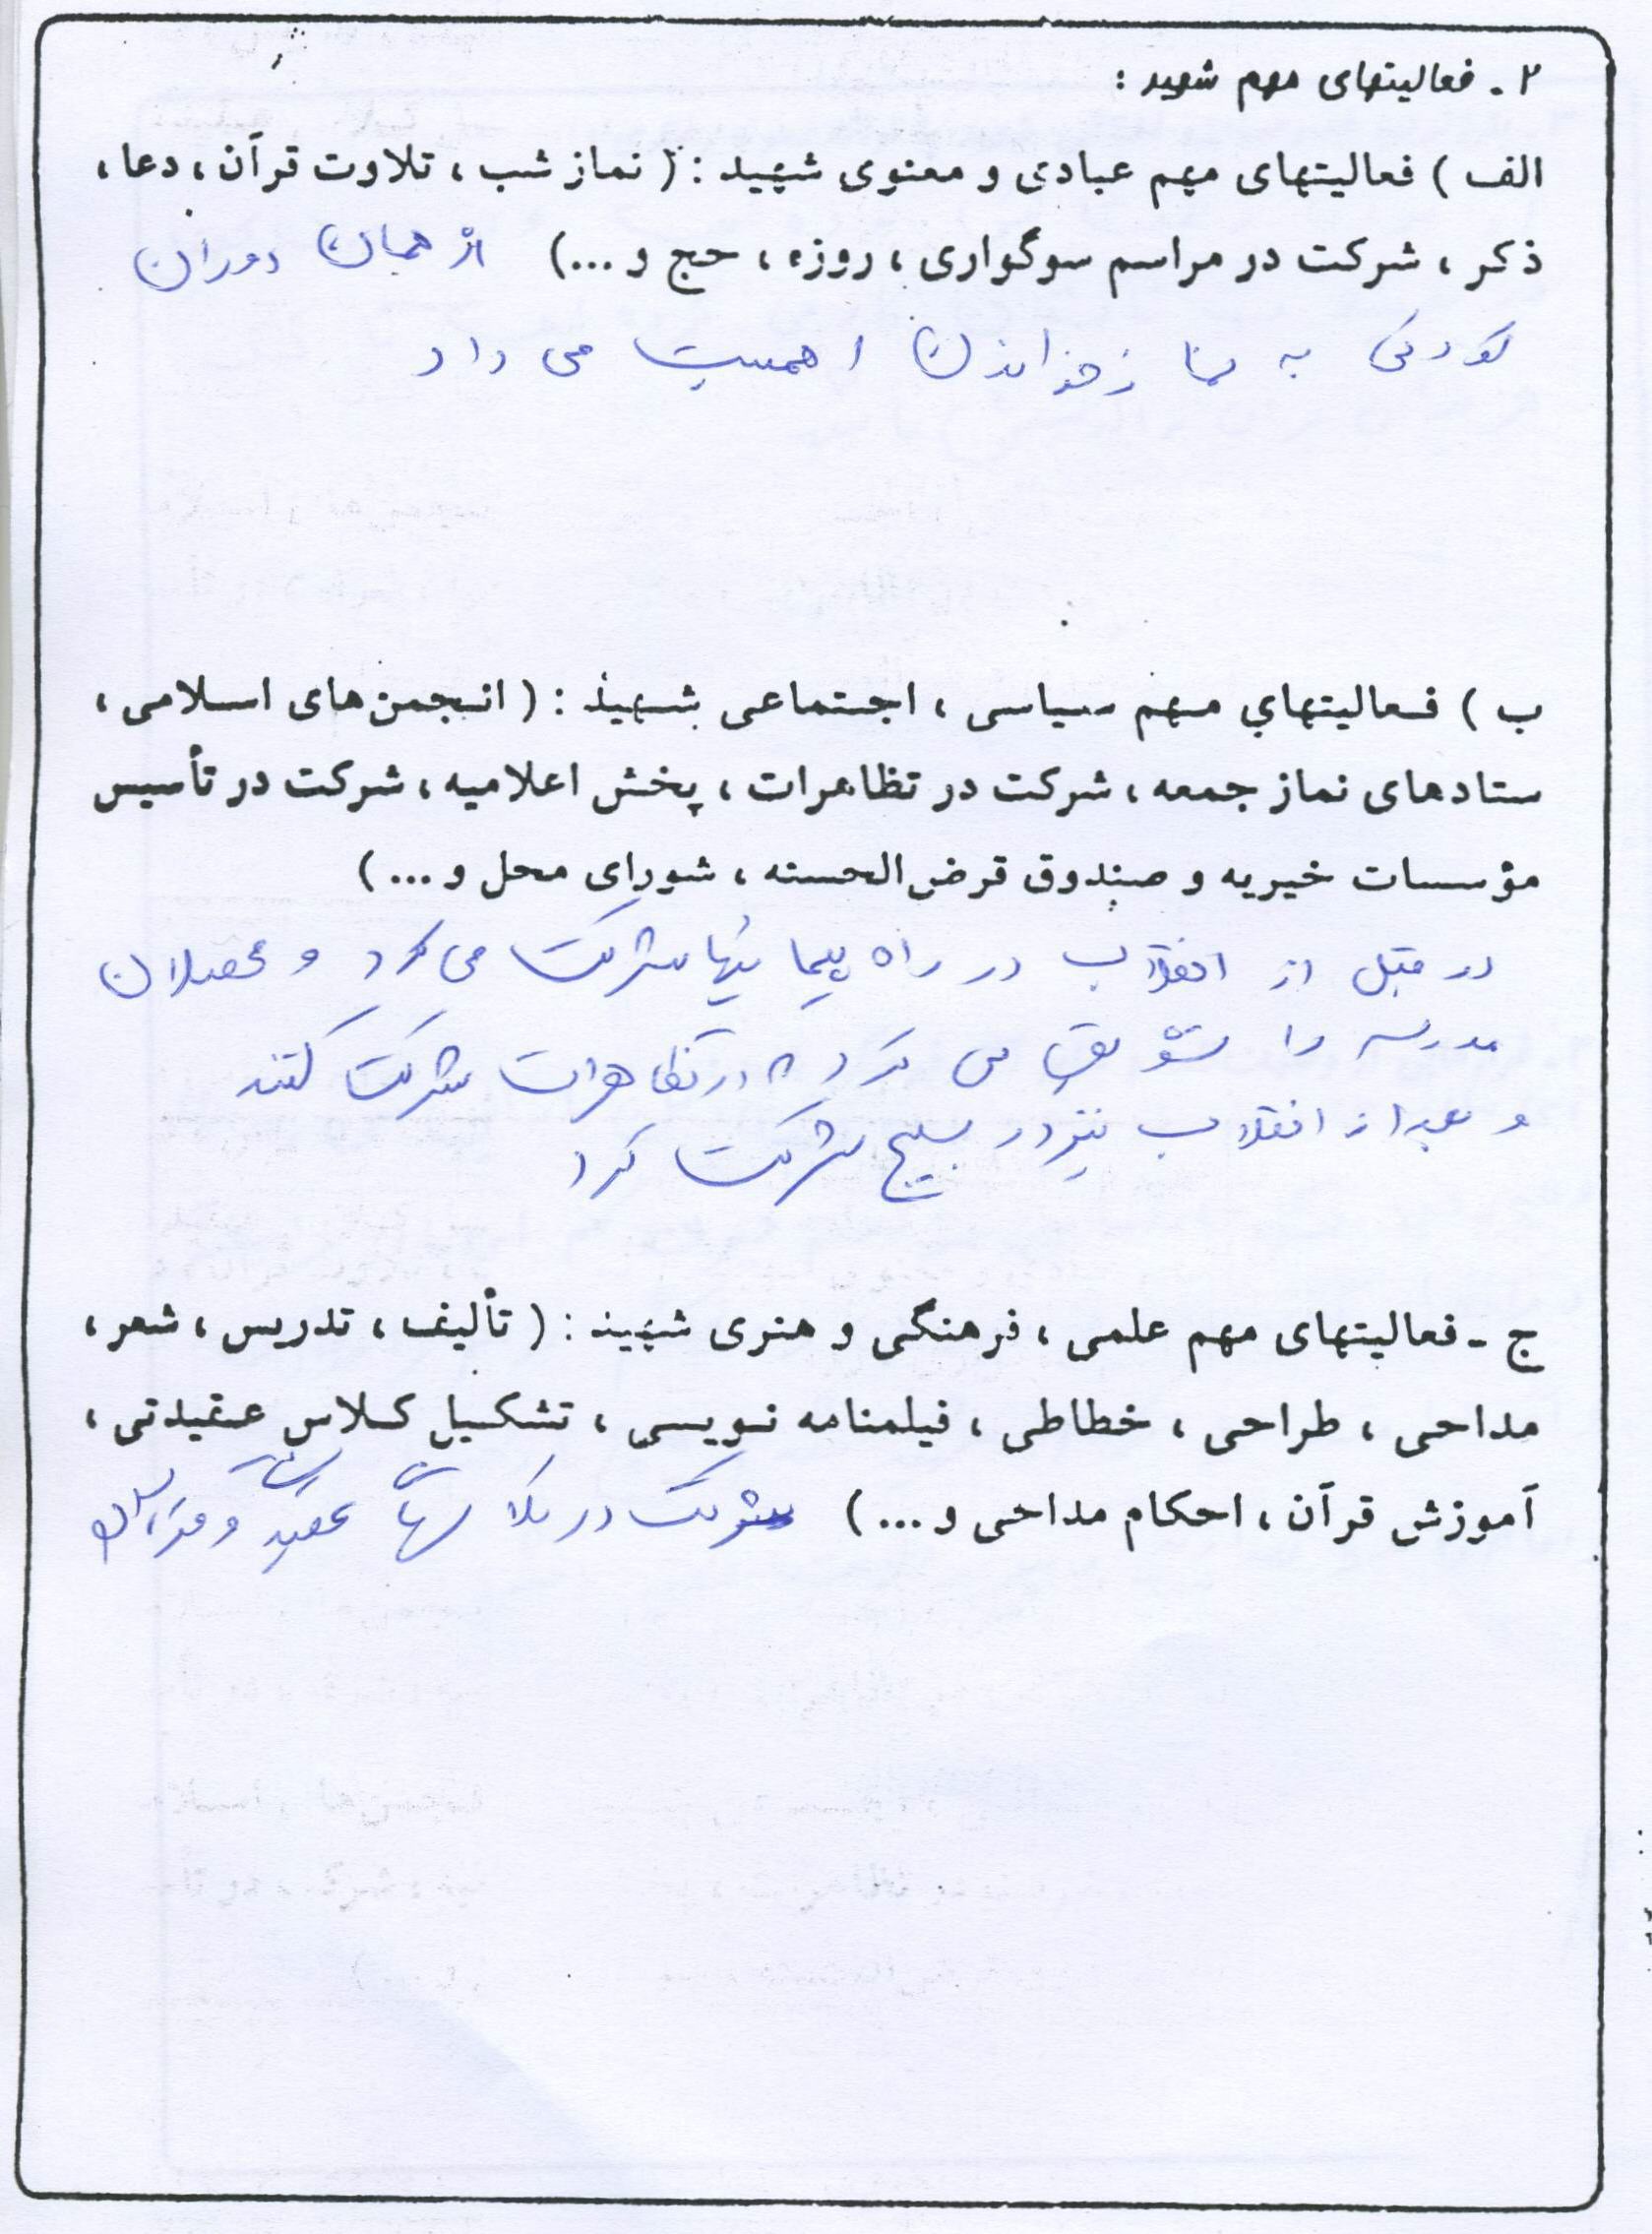 ۲ - فعالیتهای مهم شهید :
الف ) فعالیتهای مهم عبادی و معنوی شهید : ( نماز شب ، تلاوت قرآن ، دعا ،
ذکر ، شرکت در مراسم سوگواری ، روزه ، حج و ... ) از همان دوران
کودکی به نماز خواندن اهمیت می داد
ب ) فعالیتهای مهم سیاسی ، اجتماعی شهید : ( انجمن های اسلامی ،
ستادهای نماز جمعه ، شرکت در تظاهرات ، پخش اعلامیه ، شرکت در تأسیس
مؤسسات خیریه و صندوق قرض الحسنه ، شورای محل و ... )
در قبل از انقلاب در راه پیمائیها شرکت می کرد و محصلان
مدرسه را تشویق می کرد در تظاهرات شرکت کنند
و بعد از انقلاب نیز در بسیج شرکت کرد
ج - فعالیتهای مهم علمی ، فرهنگی و هنری شهید : ( تألیف ، تدریس ، شعر ،
مداحی ، طراحی ، خطاطی ، فیلمنامه نویسی ، تشکیل کلاس عقیدتی ،
آموزش قرآن ، احکام مداحی و ... ) شرکت در کلاسهای و